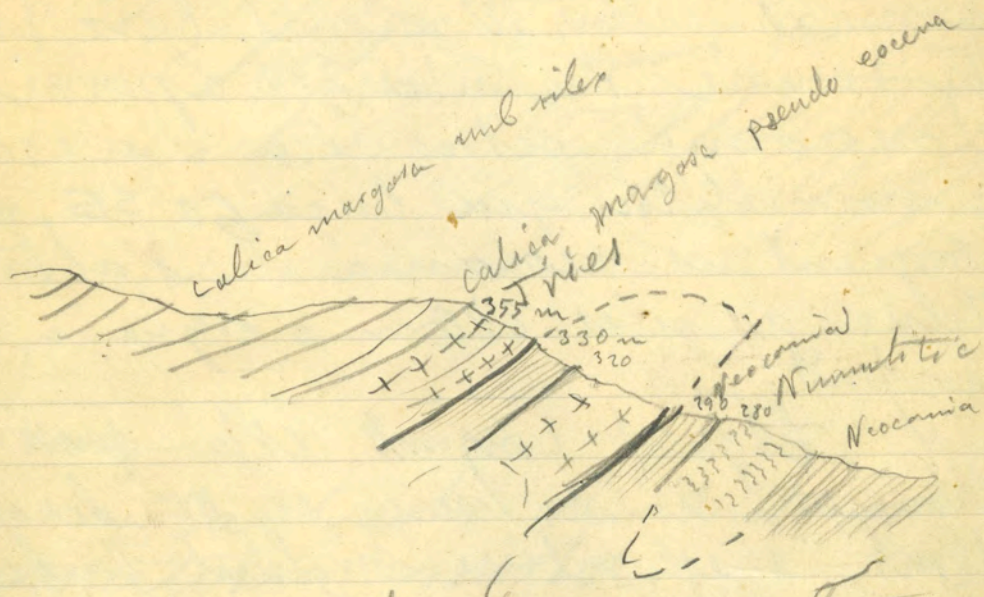 calica margosa amb silex
calica margosa pseudo eocena
Tries
355 m
330 m
320
Neocomià
290
280
Numulitic
Neocomia